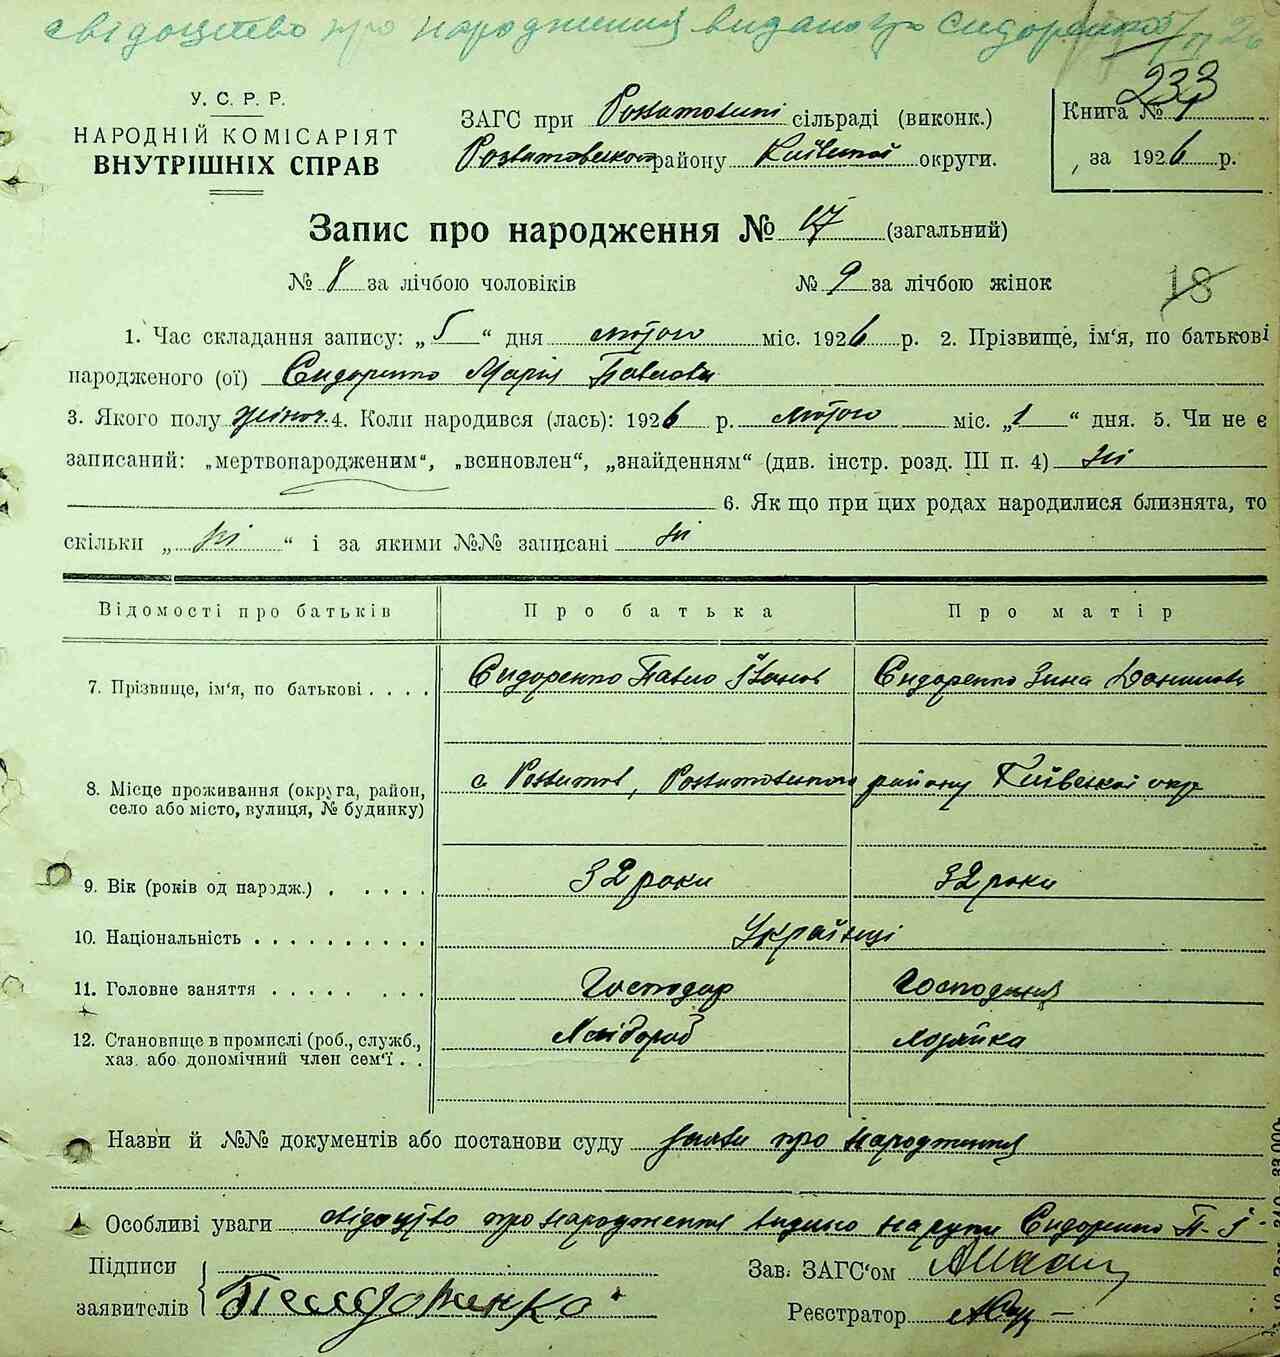 свідоцтво про народження видано гр Сидоренко 5/II 26
У. С. Р. Р.
НАРОДНІЙ КОМІСАРІЯТ
ВНУТРІШНІХ СПРАВ
ЗАГС при сільраді (виконк.)
району Київської округи.
233
Книга № 1
за 1926 р.
Запис про народження № 17 (загальний)
№ 8 за лічбою чоловіків № 9 за лічбою жінок
18
1. Час складання запису: „5“ дня лютого міс. 1926 р. 2. Прізвище, ім'я, по батькові
народженого (ої) Сидоренко Марія Павлови
3. Якого полу жіноч. 4. Коли народився (лась): 1926 р. лютого міс. „1“ дня. 5. Чи не є
записаний: „мертвонародженим“, „всиновлен“, „знайденням“ (див. інстр. розд. III п. 4) ні
6. Як що при цих родах народилися близнята, то
скільки „ні“ і за якими №№ записані ні
Відомості про батьків Про батька Про матір
7. Прізвище, ім'я, по батькові . . . . Сидоренко Павло Іванов Сидоренко Зина Данилови
8. Місце проживання (округа, район, с району Київської окр
село або місто, вулиця, № будинку)
9. Вік (років од народж.) . . . . . 32 роки 32 роки
10. Національність . . . . . . . . . . Українці
11. Головне заняття . . . . . . . . Господар Господиня
12. Становище в промислі (роб., служб., Хлібороб хозяйка
хаз. або допомічний член сем'ї . .
Назви й №№ документів або постанови суду про народження
Особливі уваги свідоцтво про народження видано на руки Сидоренко П. І.
Підписи
заявителів Зав. ЗАГС'ом
Реєстратор